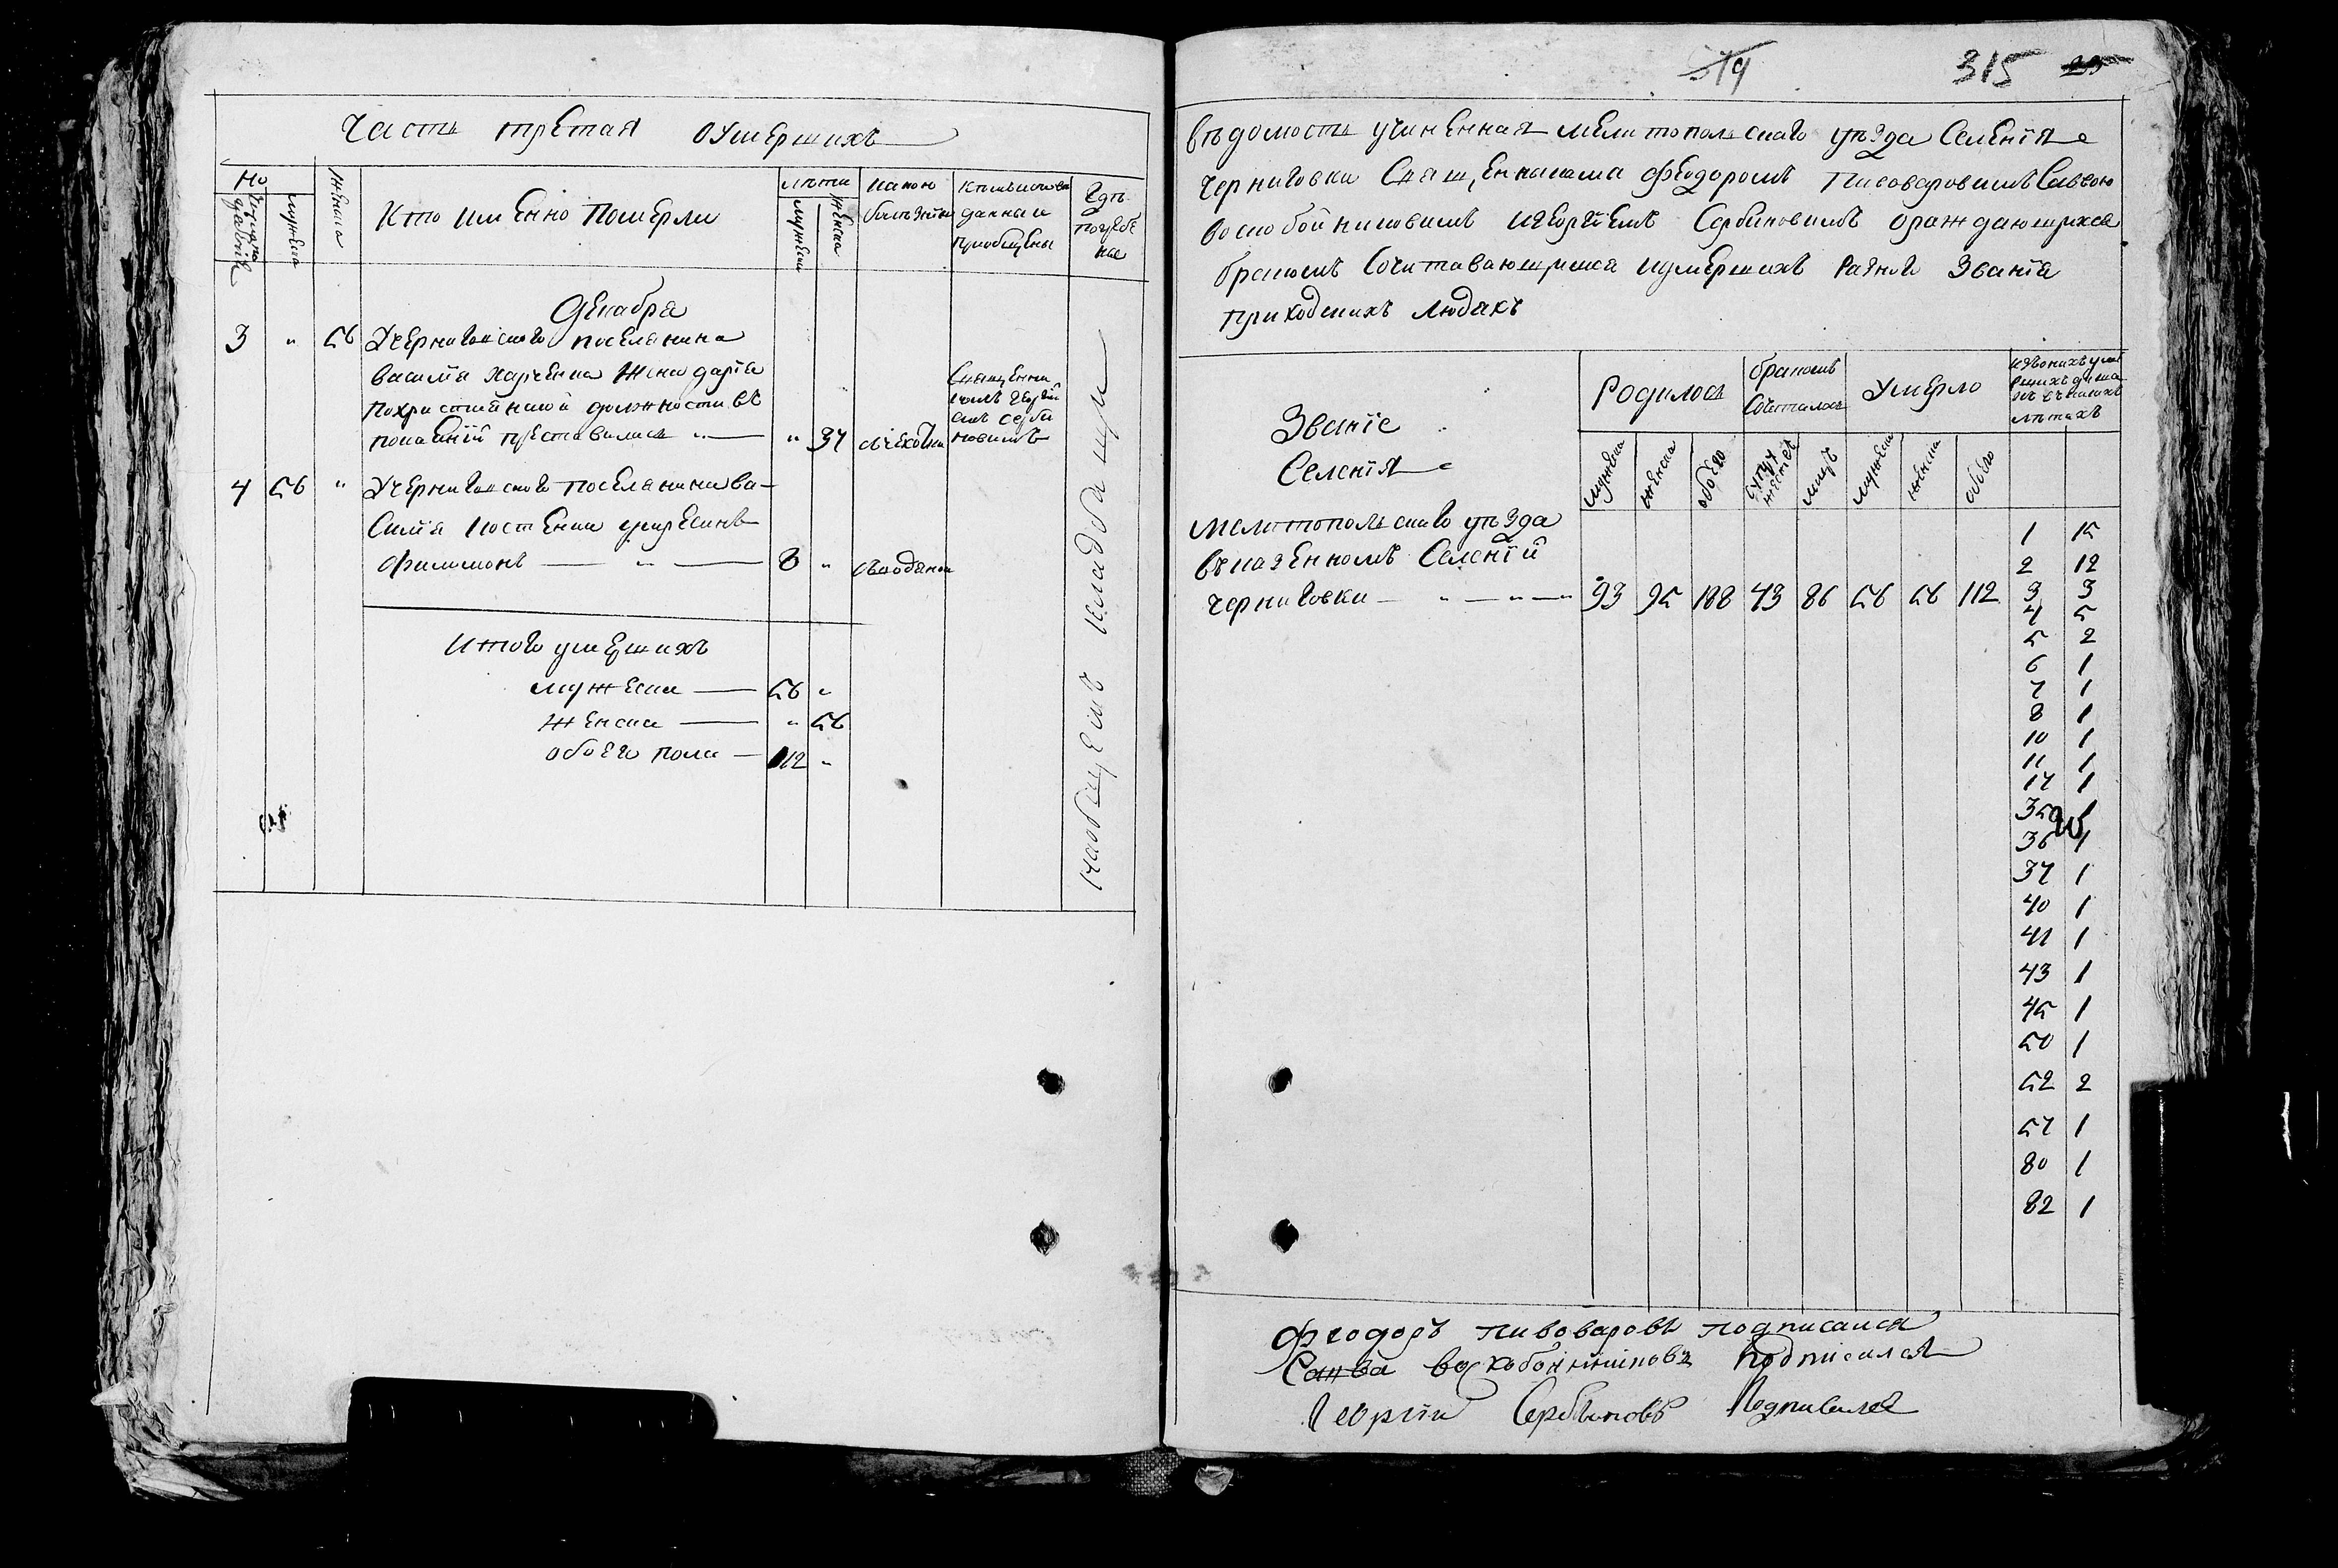 Часть третая оумершихъ
Но
мужеска
женска
Кто именно Померли
лѣта
мужеска
женска
Какою
болѣзнію
Кѣмъ исповѣ
даны и
приобщены
Гдѣ
погребе
ны
Декабра
3 " 56 Учерниговскаго поселянина
василіа харченка жена дарія
похристиянской должности въ
покаяніи преставилась " 37
Священни
комъ Георгі
емъ серби
новимъ
4 56 " Учерниговскаго поселянина ва-
силіа костенка
филимонъ " 8 "
на общемъ кладбищи
Итого умершихъ
мужеска 56 "
женска " 56
обоего пола 112 "
319
315
вѣдомость учиненная мелитопольскаго уѣзда Селенія
черниговки Священниками феодоромъ Пивоваровимъ Саввою
воскобойниковимъ игеоргіемъ Сербиновимъ ораждающихся
бракомъ Сочитавающихся иумершихъ разного Званія
приходскихъ людяхъ
Званіе
Селенія
Родилось
бракомъ
Сочеталось
Умерло
мужеска
женска
обоего
супру
жествъ
лицъ
мужеска
женска
обоего
мелитопольскаго уѣзда
въказенномъ Селеніи
черниговки " " " 93 95 188 43 86 56 56 112
1 15
2 12
3 3
4 5
5 2
6 1
7 1
8 1
10 1
11 1
17 1
35 1
36 1
37 1
40 1
41 1
43 1
45 1
50 1
52 2
57 1
80 1
82 1
Феодоръ пивоваровъ подписался
Савва воскобойниковъ подписался
Георгій Сербиновъ Подписался